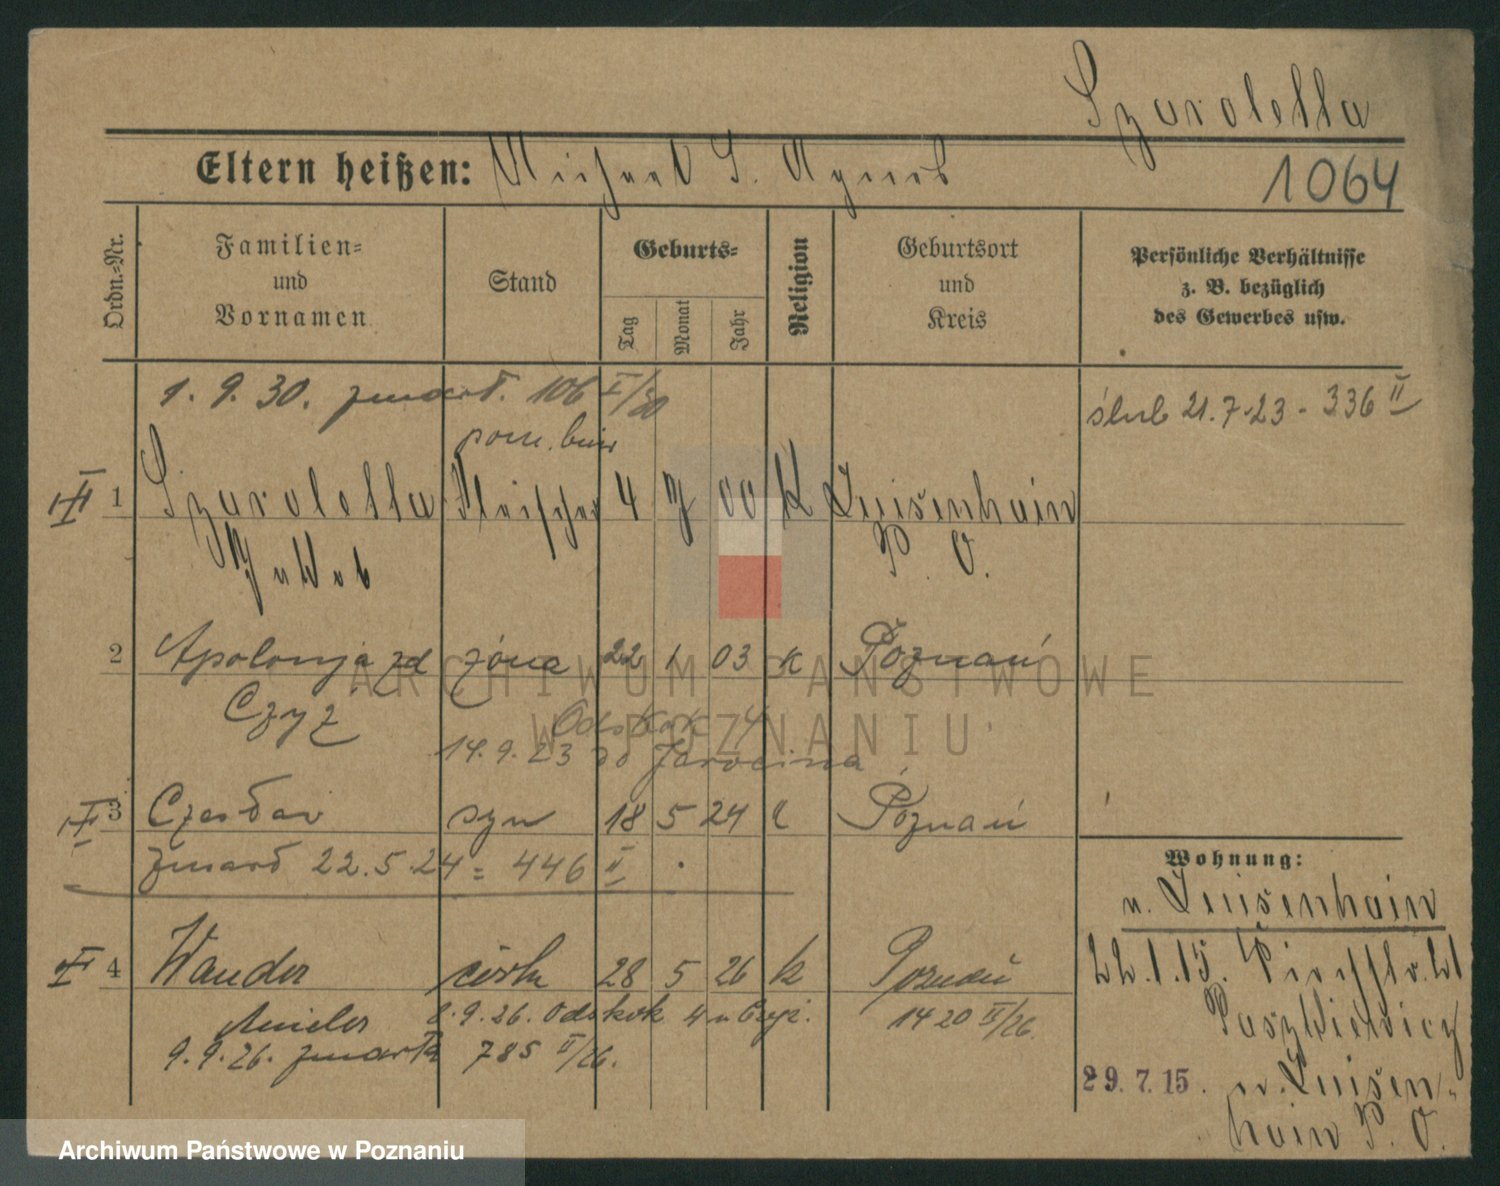 Szarolella
Eltern heißen: Michael S. Agnes
1064
Ordn.=Nr.
Familien=
und
Vornamen
Stand
Geburts=
Tag
Monat
Jahr
Religion
Geburtsort
und
Kreis
Persönliche Verhältnisse
z. B. bezüglich
des Gewerbes usw.
1. 9. 30. zmarł. 106 II/30
ślub 21.7.23 - 336 II
pom.
1 Szarolella Fleischer 4 7 00 K Luisenhain
Jakob P. O.
2 Apolonja zd żona 22 1 03 K Poznań
Czyż
Odskok 4
14.9.23 do Jarocina
II 3 Czesław syn 18 5 24 k Poznań
zmarł 22.5.24 = 446 II
Wohnung:
n. Luisenhain
II 4 Wanda córka 28 5 26 k Poznań
22.1.15.
Aniela 8.9.26. Odskok 4 1420 II/26.
9.9.26. zmarła 785 II/26.
29.7.15. n. Luisen-
hain P. O.
ARCHIWUM PAŃSTWOWE
W POZNANIU
Archiwum Państwowe w Poznaniu